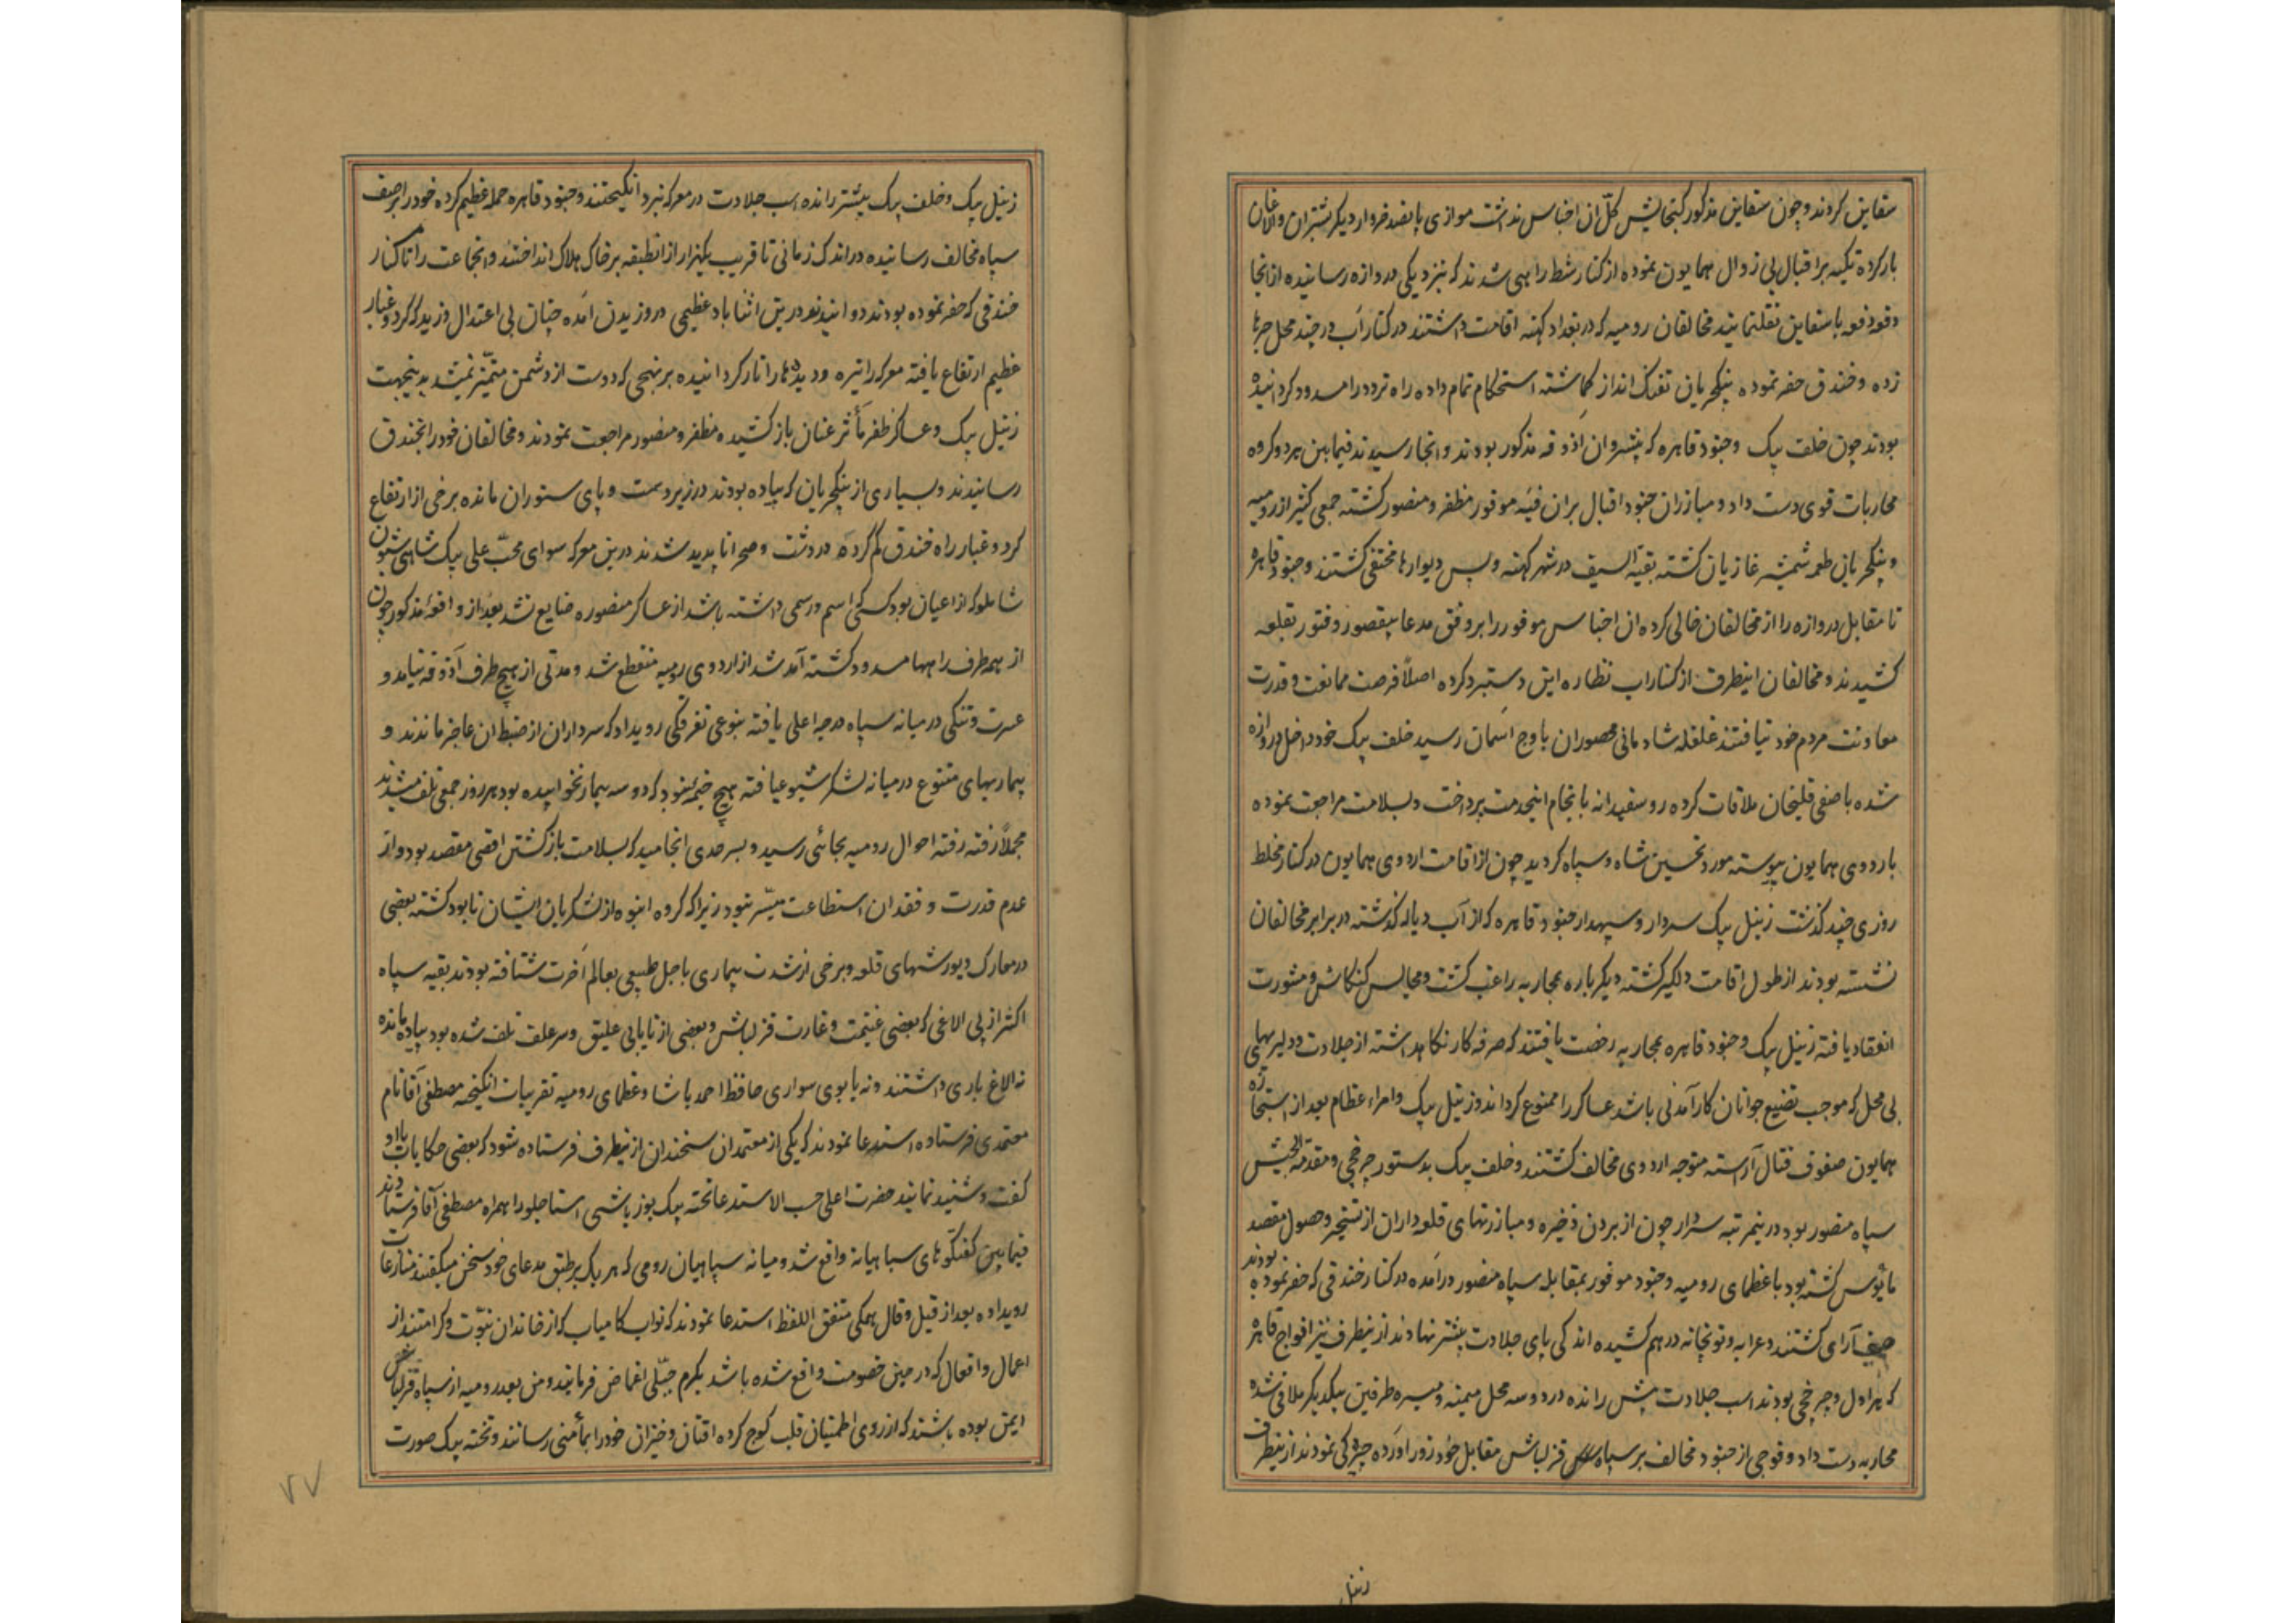 سفاین کردند و چون سفاین مذکور کنجایش کلّ ان اجناس نداشت موازی پانصد خروار دیکر بشتران و الاغان
بار کرده تکیه بر اقبال بی زوال همایون نموده از کنار شط راهی شدند که بنزدیکی دروازه رسانیده از انجا
دفعه دفعه با سفاین نقلنمایند مخالفان رومیه که در بغداد کهنه اقامت داشتند در کنار آب در چند محل جرها
زده و خندق حفر نموده ینکچریان تفنک انداز کماشته استحکام تمام داده راه تردد را مسدود کردانیده
بودند چون خلف بیک و جنود قاهره که پیشروان اذوقه مذکور بودند و انجا رسیدند فیمابین هر دو کروه
محاربات قوی دست داد و مبارزان جنود اقبال بران فئه موفور مظفر و منصور کشته جمعی کثیر از رومیه
و ینکچریان طعمه شمشیر غازیان کشته بقیّة السیف در شهر کهنه و پس دیوارها مختفی کشتند و جنود قاهره
تا مقابل دروازه را از مخالفان خالی کرده ان اجناس موفور را بر وفق مدعا بیقصور و فتور بقلعه
کشیدند و مخالفان اینطرف از کنار اب نظاره این دستبرد کرده اصلاً فرصت ممانعت و قدرت
معاونت مردم خود نیافتند غلغله شادمانی محصوران باوج اسمان رسید خلف بیک خود داخل دروازه
شده با صفی قلیخان ملاقات کرده رو سفیدانه بانجام اینخدمت پرداخت و بسلامت مراجعت نموده
باردوی همایون پیوسته مورد تحسین شاه و سپاه کردید چون از اقامت اردوی همایون در کنار مخلط
روزی چند کذشت زینل بیک سردار و سپهدار جنود قاهره که از آب دیاله کذشته در برابر مخالفان
نشسته بودند از طول اقامت دلکیر کشته دیکر باره بمحاربه راغب کشت و مجالس کنکاش و مشورت
انعقاد یافته زینل بیک و جنود قاهره بمحاربه رخصت یافتند که صرفه کار نکاهداشته از جلادت و دلیریهای
بی محل که موجب تضییع جوانان کار آمدنی باشد عساکر را ممنوع کردانند و زینل بیک و امراء عظام بعد از استجازه
همایون صفوف قتال آراسته متوجه اردوی مخالف کشتند و خلف بیک بدستور چرخچی و مقدمة الجیش
سپاه منصور بود درینمرتبه سردار چون از بردن ذخیره و مبارزتهای قلعه داران از تسخیر و حصول مقصد
مایوس کشته بود با عظمای رومیه و جنود موفور بمقابله سپاه منصور درآمده در کنار خندقی که حفر نموده بودند
صف آرای کشتند و عرابه و توپخانه درهم کشیده اندکی پای جلادت پیشتر نهادند از ینطرف نیز افواج قاهره
که هراول و چرخچی بودند اسب جلادت پیش رانده در دو سه محل میمنه و میسره طرفین بیکدیکر ملاقی شده
محاربه دست داد و فوجی از جنود مخالف بر سپاه قزلباش مقابل خود زور اورده چیرکی نمودند از ینطرف
زینل
زینل بیک و خلف بیک پیشتر رانده اسب جلادت در معرکه نبرد انکیختند و جنود قاهره حمله عظیم کرده خود را بر صف
سپاه مخالف رسانیده در اندک زمانی تا قریب یکهزار از انطبقه بر خاک هلاک انداختند و انجماعت را تا کنار
خندقی که حفر نموده بودند دوانیدند درین اثنا باد عظیمی در وزیدن آمده چنان بی اعتدال وزید که کرد و غبار
عظیم ارتفاع یافته معرکه را تیره و دیدها را تار کردانیده بر نهجی که دوست از دشمن متمیّز نمیشد بدینجهت
زینل بیک و عساکر ظفر مأثر عنان باز کشیده مظفر و منصور مراجعت نمودند و مخالفان خود را بخندق
رسانیدند و بسیاری از ینکچریان که پیاده بودند در زیر دست و پای ستوران مانده برخی از ارتفاع
کرد و غبار راه خندق کم کرده در دشت و صحرا ناپدید شدند درین معرکه سوای محبّ علی بیک شاهی سیون
شاملو که از اعیان بود کسی که اسم و رسمی داشته باشد از عساکر منصوره ضایع نشد بعد از واقعه مذکور چون
از همه طرف راهها مسدود کشته آمد شد از اردوی رومیه منقطع شد و مدتی از هیچ طرف آذوقه نیامد و
عسرت و تنکی در میانه سپاه درجه اعلی یافته بنوعی تفرقکی رویداد که سرداران از ضبط ان عاجز ماندند و
بیماریهای متنوع در میانه لشکر شیوع یافته هیچ خیمه نبود که دو سه بیمار نخوابیده بود هر روز جمعی تلف میشدند
مجملاً رفته رفته احوال رومیه بجائی رسید و بسرحدی انجامید که بسلامت بازکشتن اقصی مقصد بود و از
عدم قدرت و فقدان استطاعت میسّر نبود زیرا که کروه انبوه از لشکریان ایشان نابود کشته بعضی
در معارک و یورشهای قلعه و برخی از شدت بیماری باجل طبیعی بعالم آخرت شتافته بودند بقیه سپاه
اکثر از بی الاغی که بعضی غنیمت و غارت قزلباش و بعضی از نایابی علیق و سر علف تلف شده بود پیاده مانده
نه الاغ باری داشتند و نه یابوی سواری حافظ احمد پاشا و عظمای رومیه تقریبات انکیخته مصطفی آقا نام
معتمدی فرستاده استدعا نمودند که یکی از معتمدان سخندان از ینطرف فرستاده شود که بعضی حکایات با او
کفت و شنید نمایند حضرت اعلی حسب الاستدعا تخته بیک یوزباشی استاجلو را همراه مصطفی آقا فرستادند
فیمابین کفتکوهای سپاهیانه واقع شد و میانه سپاهیان رومی که هر یک بر طبق مدعای خود سخن میکفتند منازعات
رویداده بعد از قیل و قال همکی متفق اللفظ استدعا نمودند که نواب کامیاب که از خاندان نبوّت و کرامتند از
اعمال و افعال که در حین خصومت واقع شده باشد بکرم جبلّی اغماض فرمایند و من بعد رومیه از سپاه قزلباش
ایمن بوده باشند که از روی اطمینان قلب کوچ کرده افتان و خیزان خود را بمأمنی رسانند و تخته بیک صورت
۷۷